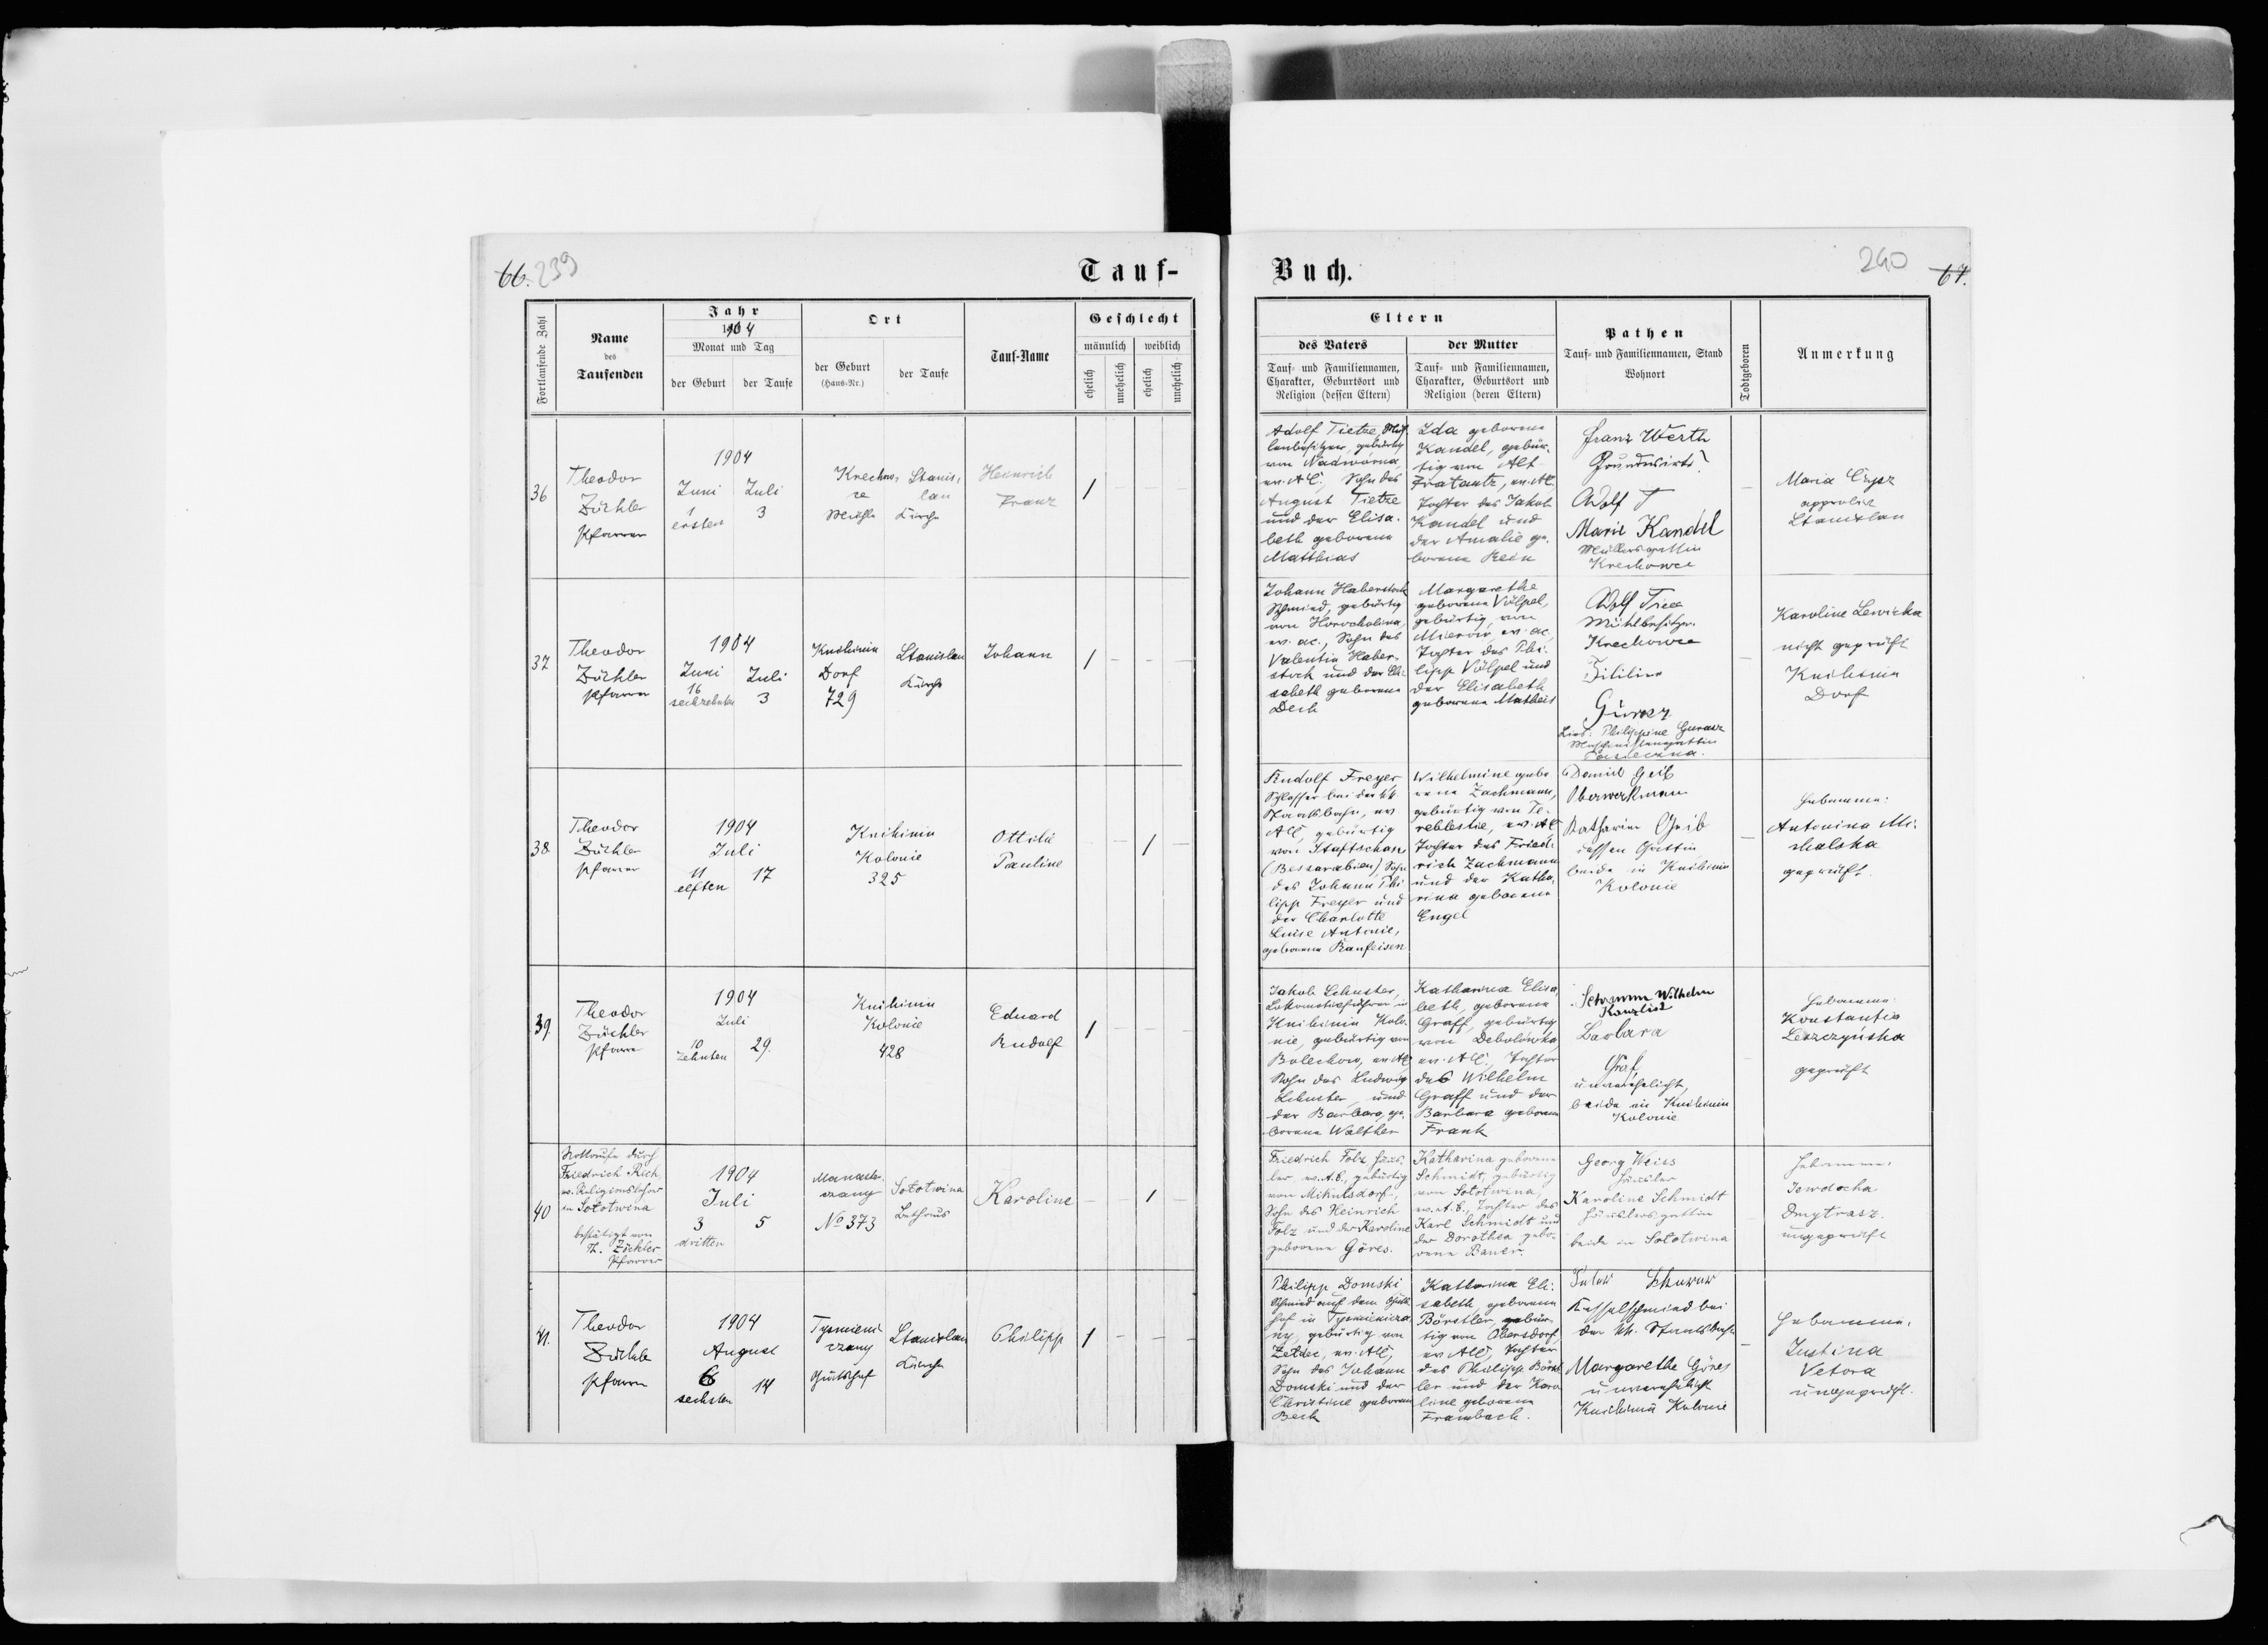 66. 239
Tauf-
Fortlaufende Zahl
Name
des
Taufenden
Jahr
1904
Monat und Tag
der Geburt
der Taufe
Ort
der Geburt
(Haus-Nr.)
der Taufe
Tauf-Name
Geschlecht
männlich
weiblich
ehelich
unehelich
ehelich
unehelich
36
Theodor
Zöckler
Pfarrer
1904
Juni Juli
1 3
ersten
Mühle
Stanis-
lau
Kirche
Heinrich
Franz
1 – – –
37
Theodor
Zöckler
Pfarrer
1904
Juni Juli
16
sechzehnten 3
Knihinin
Dorf
729
Stanislau
Kirche
Johann
1 – – –
38
Theodor
Zöckler
Pfarrer
1904
Juli
11 17
elften
Knihinin
Kolonie
325
Ottilie
Pauline
– – 1 –
39
Theodor
Zöckler
Pfarrer
1904
Juli
10 29.
zehnten
Knihinin
Kolonie
428
Eduard
Rudolf
1 – – –
40
Nottaufe durch
Friedrich Rech,
ev. Religionslehrer
in Sołotwina
bestätigt von
Th. Zöckler
Pfarrer
1904
Juli
3 5
dritten
Manaster-
czany
No 373
Sołotwina
Bethaus
Karoline
– – 1 –
41.
Theodor
Zöckler
Pfarrer
1904
August
6 14
sechsten
Tysmieni-
czany
Gutshof
Stanislau
Kirche
Philipp
1 – – –
Buch.
240 67.
Eltern
des Vaters
Tauf- und Familiennamen,
Charakter, Geburtsort und
Religion (dessen Eltern)
der Mutter
Tauf- und Familiennamen,
Charakter, Geburtsort und
Religion (deren Eltern)
Pathen
Tauf- und Familiennamen, Stand
Wohnort
Todtgeboren
Anmerkung
Adolf Tietze, Müh-
lenbesitzer, gebürtig
von Nadwórna,
ev. AC. Sohn des
August Tietze
und der Elisa-
beth geborene
Matthias
Ida geborene
Kandel, gebür-
tig von Alt-
Fratautz, ev. AC.
Tochter des Jakob
Kandel und
der Amalie ge-
borene Rein
Franz Werth
Grundwirth
Adolf T
Marie Kandel
Müllersgattin
Krechowce
–
Maria
Stanislau
Johann Haberstock
Schmied, gebürtig
von Horocholina,
ev. ac., Sohn des
Valentin Haber-
stock und der Eli-
sabeth geborene
Deck
Margarethe
geborene Völpel,
gebürtig von
Mierów, ev. ac.
Tochter des Phi-
lipp Völpel und
der Elisabeth
geborene Matheis
Adolf
Mühlbesitzer
Krechowce
Philippine Gurasz
–
Karoline Lewicka
nicht geprüft
Knihinin
Dorf
Rudolf Freyer
Schlosser bei der kk.
Staatsbahn, ev.
AC, gebürtig
von
(Bessarabien) Sohn
des Johann Phi-
lipp Freyer und
der Charlotte
Luise Antonie,
geborene Ranfeisen
Wilhelmine gebo-
rene Zachmann,
gebürtig von Te-
reblestie, ev. AC
Tochter des Fried-
rich Zachmann
und der Katha-
rina geborene
Engel
Daniel Geib
Oberwerkmann
Katharina Geib
dessen Gattin
beide in Knihinin
Kolonie
–
Hebamme:
Antonina Mi-
chalska
geprüft.
Jakob Schuster,
Lokomotivführer in
Knihinin Kolo-
nie, gebürtig von
Bolechow, ev. AC
Sohn des Ludwig
Schuster und
der Barbara, ge-
borene Walther
Katharina Elisa-
beth, geborene
Graff, gebürtig
von Debolówka
ev. AC. Tochter
des Wilhelm
Graff und der
Barbara geborene
Frank
Schramm Wilhelm
Kanzlist
Barbara
Graf,
unverehelicht,
beide in Knihinin
Kolonie
–
Hebamme:
Konstantia
Leszczyńska
geprüft
Friedrich Folz Häus-
ler, ev. A.B., gebürtig
von Mikulsdorf,
Sohn des Heinrich
Folz und der Karoline
geborene Göres.
Katharina geborene
Schmidt, gebürtig
von Sołotwina,
ev. A.B., Tochter des
Karl Schmidt und
der Dorothea gebo-
rene Bauer.
Georg Weiss
Häusler
Karoline Schmidt
Häuslersgattin
beide in Sołotwina
–
Hebamme:
Jewdocha
Dmytrasz.
ungeprüft
Philipp Domski
Schmied auf dem Guts-
hof in Tysmienicza-
ny, gebürtig von
ev. AC,
Sohn des Johann
Domski und der
Christine geborene
Beck
Katharina Eli-
sabeth, geborene
Börstler, gebür-
tig von Obersdorf
ev AC, Tochter
des Philipp Börst-
ler und der Karo-
line geborene
Frambach.
Kesselschmied bei
der kk. Staatsbahn
Margarethe Göres
unverehelicht
Knihinin Kolonie
–
Hebamme:
Justina
Vetora
ungeprüft.